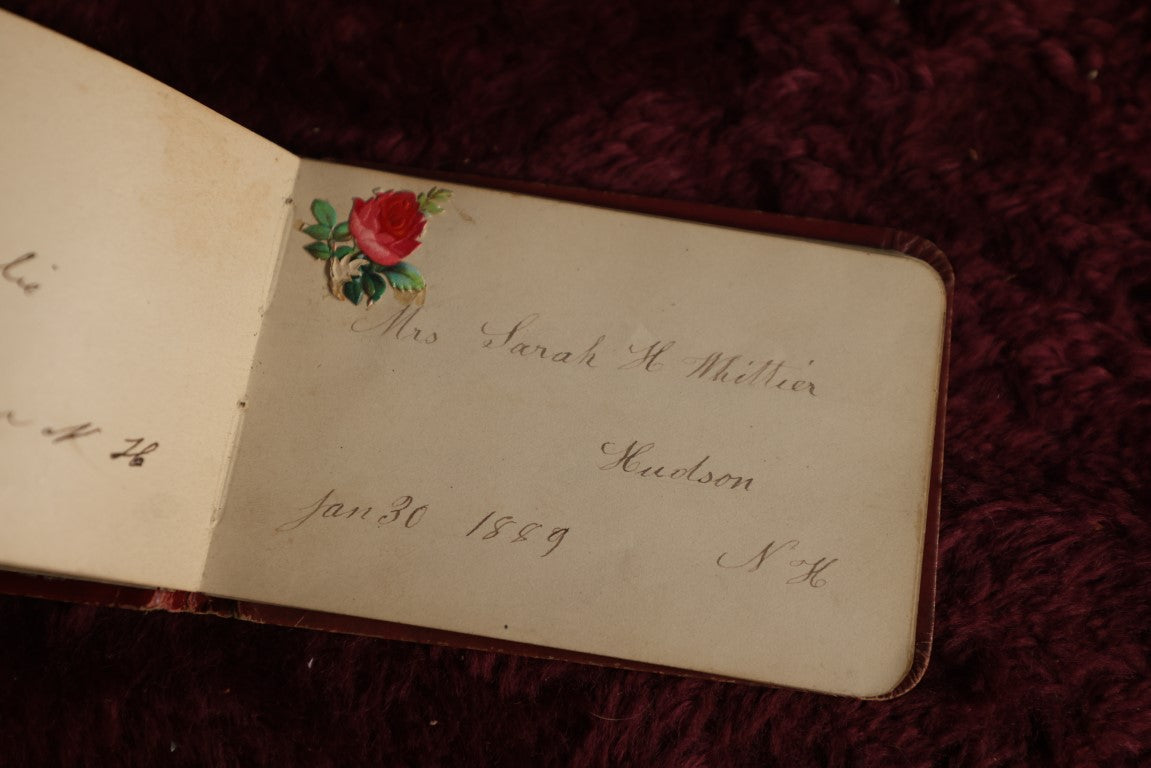 lie
N H
Mrs Sarah H Whittier
Hudson
Jan 30 1889
N H